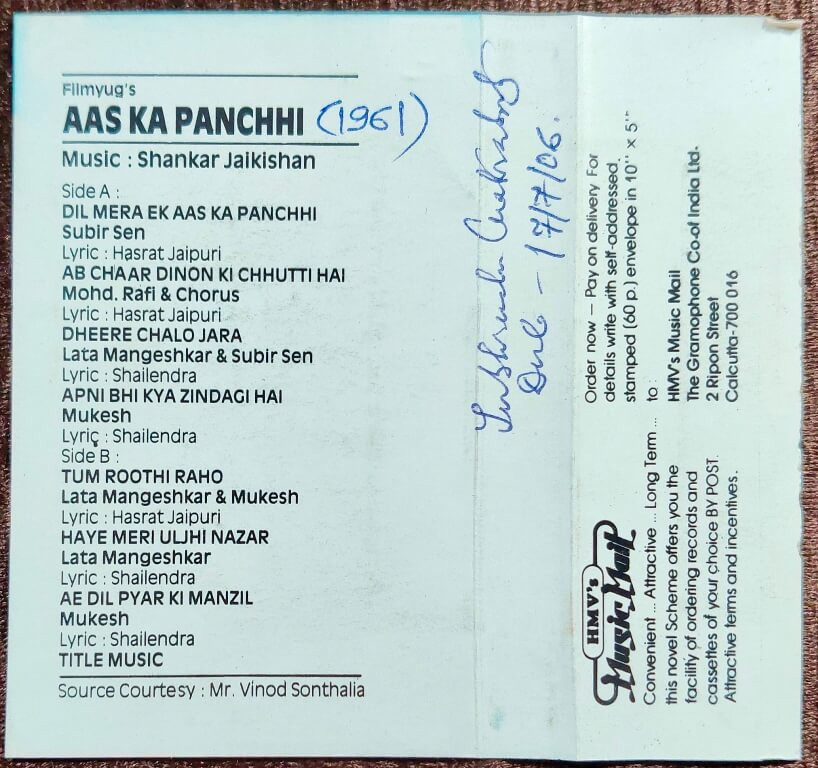 Filmyug's
AAS KA PANCHHI (1961)
Music : Shankar Jaikishan
Side A :
DIL MERA EK AAS KA PANCHHI
Subir Sen
Lyric : Hasrat Jaipuri
AB CHAAR DINON KI CHHUTTI HAI
Mohd. Rafi & Chorus
Lyric : Hasrat Jaipuri
DHEERE CHALO JARA
Lata Mangeshkar & Subir Sen
Lyric : Shailendra
APNI BHI KYA ZINDAGI HAI
Mukesh
Lyric : Shailendra
Side B :
TUM ROOTHI RAHO
Lata Mangeshkar & Mukesh
Lyric : Hasrat Jaipuri
HAYE MERI ULJHI NAZAR
Lata Mangeshkar
Lyric : Shailendra
AE DIL PYAR KI MANZIL
Mukesh
Lyric : Shailendra
TITLE MUSIC
Source Courtesy : Mr. Vinod Sonthalia
17/7/06.
HMV's
Music Mail
Convenient ... Attractive ... Long Term ...
this novel Scheme offers you the
facility of ordering records and
cassettes of your choice BY POST.
Attractive terms and incentives.
Order now – Pay on delivery For
details write with self-addressed,
stamped (60 p.) envelope in 10" x 5"
to :
HMV's Music Mail
The Gramophone Co of India Ltd.
2 Ripon Street
Calcutta-700 016